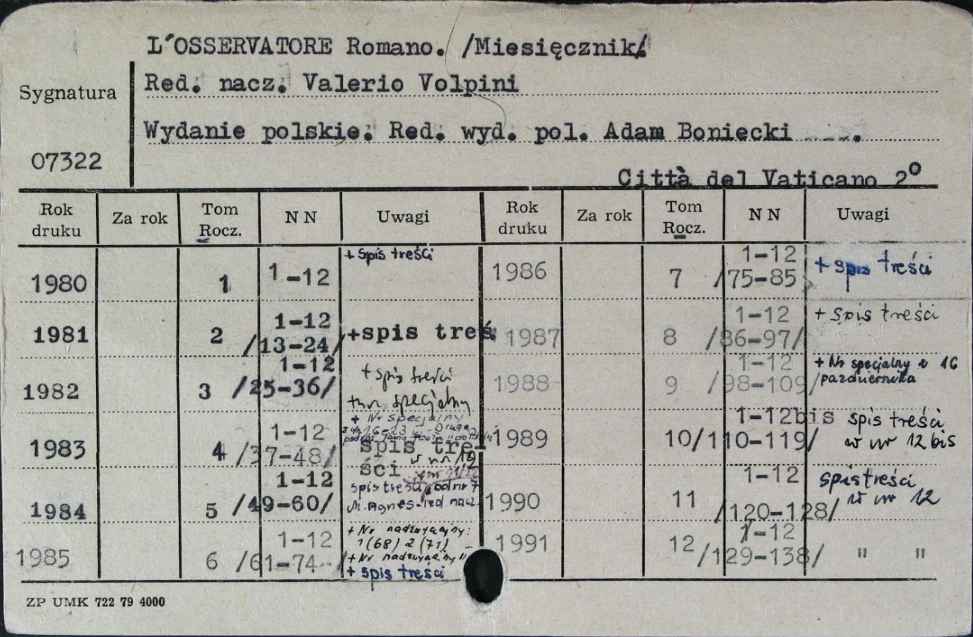 L'OSSERVATORE Romano. /Miesięcznik/
Sygnatura
Red. nacz. Valerio Volpini
Wydanie polskie. Red. wyd. pol. Adam Boniecki
07322
Città del Vaticano 2°
Rok druku Za rok Tom Rocz. NN Uwagi Rok druku Za rok Tom Rocz. NN Uwagi
1980 1 1-12 + spis treści
1981 2 1-12 /13-24/ +spis treś
1982 3 1-12 /25-36/ + spis treści + nr. specjalny
1983 4 1-12 /37-48/ + Nr specjalny
spis treści w nr 12
1984 5 1-12 /49-60/ spis treści od nr 7
red nacz.
1985 6 1-12 /61-74 + Nr nadzwyczajny:
1 (68) 2 (71)
+ Nr nadzwyczajny
+ spis treści
1986 7 1-12 /75-85/ + spis treści
1987 8 1-12 /86-97/ + spis treści
1988 9 1-12 /98-109/ + Nr specjalny z 16 października
1989 10 1-12bis /110-119/ spis treści w nr 12 bis
1990 11 1-12 /120-128/ spis treści w nr 12
1991 12 1-12 /129-138/ " "
ZP UMK 722 79 4000